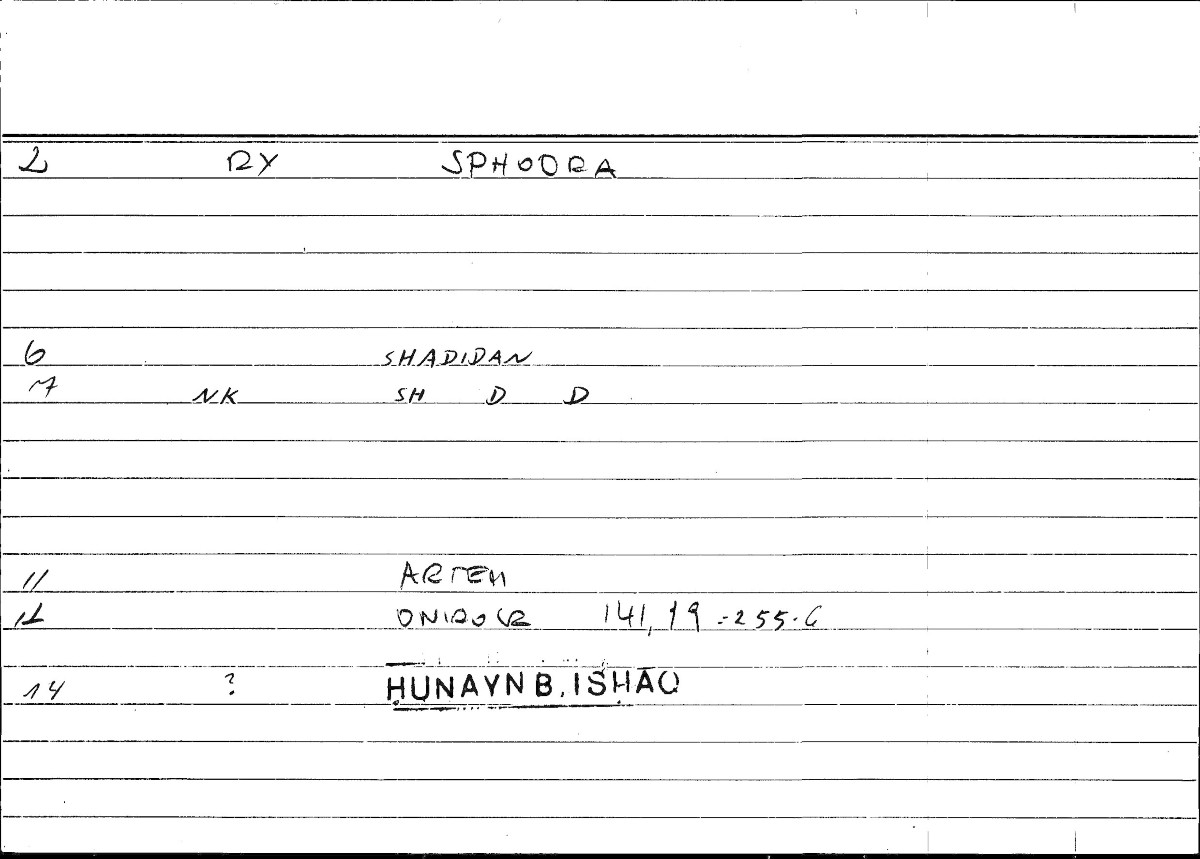 2 RY SPHODRA
6 SHADIDAN
7 NK SH D D
11 ARTEM
12 ONIROCR 141,19 - 255.6
14 ? ḤUNAYN B. ISḤĀQ